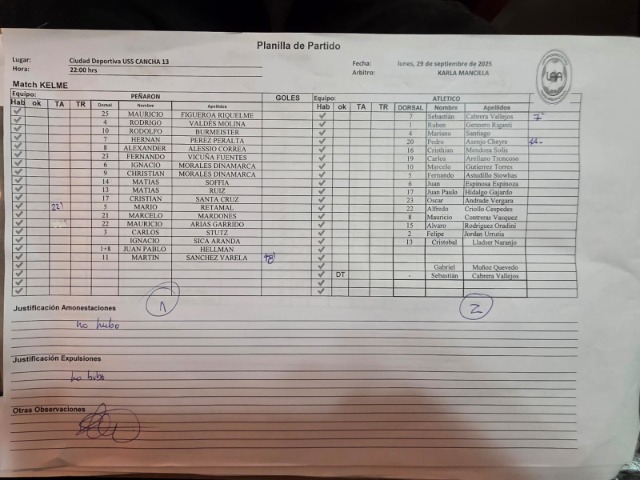 Planilla de Partido
Lugar: Ciudad Deportiva USS CANCHA 13 Fecha: lunes, 29 de septiembre de 2025
Hora: 22:00 hrs Arbitro: KARLA MANCILLA
Match KELME
Equipo: PEÑARON GOLES Equipo: ATLETICO
Hab ok TA TR Dorsal Nombre Apellidos Hab ok TA TR DORSAL Nombre Apellidos
25 MAURICIO FIGUEROA RIQUELME 7 Sebastián Cabrera Vallejos 7'
4 RODRIGO VALDÉS MOLINA 1 Ruben Gennaro Riganti
10 RODOLFO BURMEISTER 4 Mariano Santiago
7 HERNAN PEREZ PERALTA 20 Pedro Asenjo Cheyre 44
8 ALEXANDER ALESSIO CORREA 16 Cristhian Mendoza Solis
23 FERNANDO VICUÑA FUENTES 19 Carlos Arellano Troncoso
6 IGNACIO MORALES DINAMARCA 10 Marcelo Gutierrez Torres
9 CHRISTIAN MORALES DINAMARCA 5 Fernando Astudillo Slowhas
14 MATIAS SOFFIA 6 Juan Espinosa Espinoza
13 MATIAS RUIZ 17 Juan Paulo Hidalgo Gajardo
17 CRISTIAN SANTA CRUZ 23 Oscar Andrade Vergara
22' 5 MARIO RETAMAL 22 Alfredo Criollo Cespedes
21 MARCELO MARDONES 8 Mauricio Contreras Vasquez
22 MAURICIO ARIAS GARRIDO 15 Alvaro Rodriguez Oradini
3 CARLOS STUTZ 2 Felipe Jordan Urrutia
IGNACIO SICA ARANDA 13 Cristobal Lladser Naranjo
1+8 JUAN PABLO HELLMAN
11 MARTIN SANCHEZ VARELA 48' Gabriel Muñoz Quevedo
DT - Sebastián Cabrera Vallejos
1 2
Justificación Amonestaciones
no hubo
Justificación Expulsiones
no hubo
Otras Observaciones